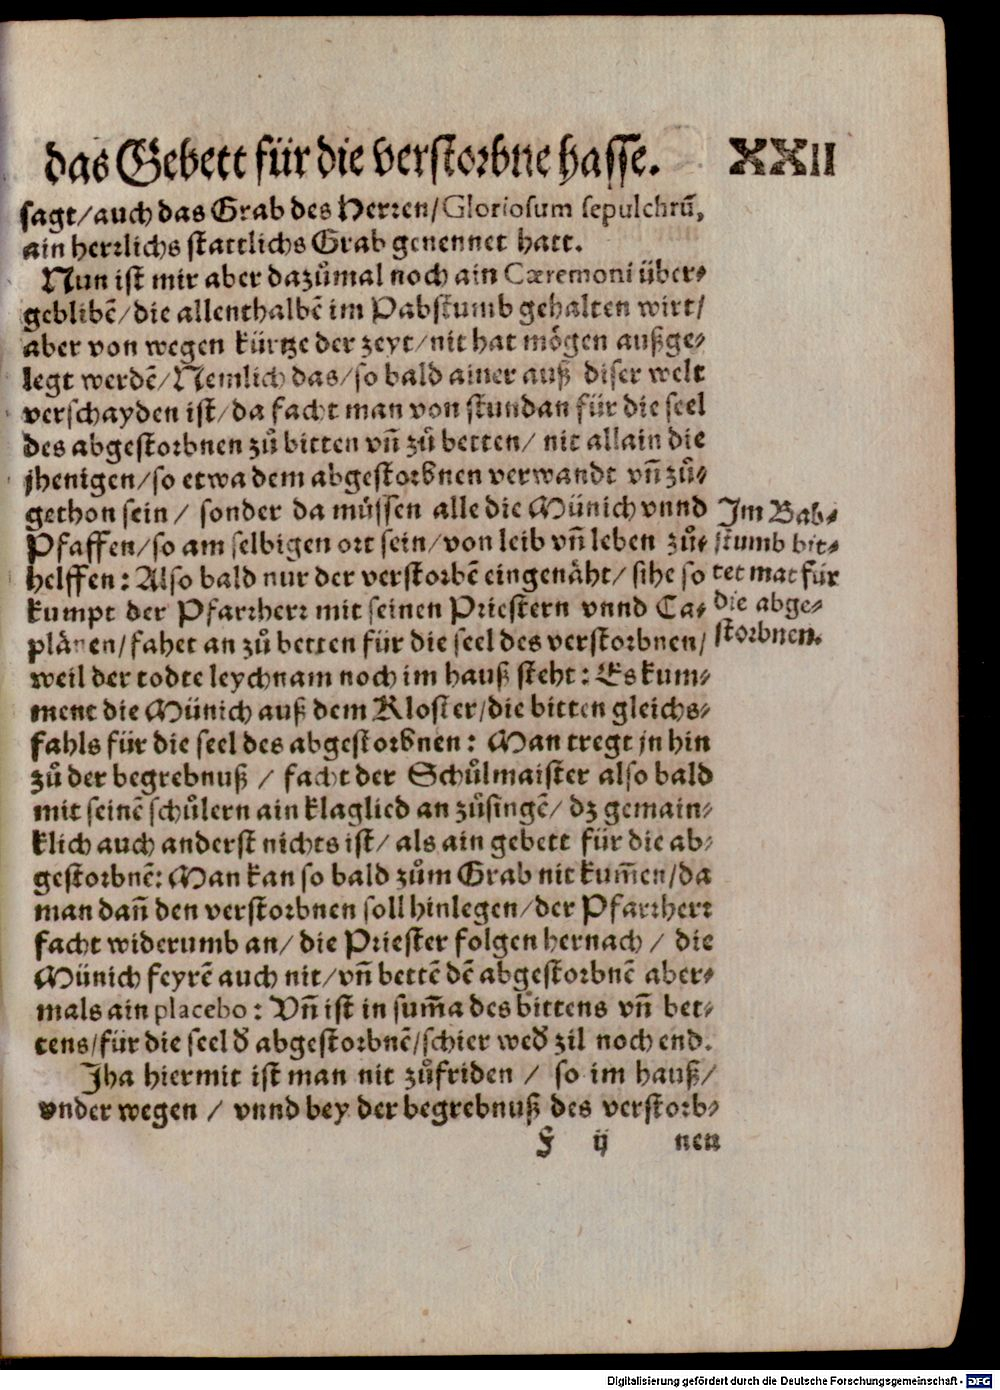 das Gebett für die verstorbne hasse. XXII
sagt/auch das Grab des Herren/Gloriosum sepulchrū,
ain herrlichs stattlichs Grab genennet hatt.
Nun ist mir aber dazůmal noch ain Cæremoni über-
geblibē/die allenthalbē im Pabstumb gehalten wirt/
aber von wegen kürtze der zeyt/nit hat mögen außge-
legt werdē/Nemlich das/so bald ainer auß diser welt
verschayden ist/da facht man von stundan für die seel
des abgestorbnen zů bitten vn̄ zů betten/ nit allain die
jhenigen/so etwa dem abgestorbnen verwandt vn̄ zů-
gethon sein/ sonder da müssen alle die Münich vnnd
Pfaffen/so am selbigen ort sein/von leib vn̄ leben zů-
helffen: Also bald nur der verstorbē eingenäht/ sihe so
kumpt der Pfarrherr mit seinen Priestern vnnd Ca-
plänen/fahet an zů betten für die seel des verstorbnen/
weil der todte leychnam noch im hauß steht: Es kum-
ment die Münich auß dem Kloster/die bitten gleichs-
fahls für die seel des abgestorbnen: Man tregt jn hin
zů der begrebnuß / facht der Schůlmaister also bald
mit seinē schůlern ain klaglied an zůsingē/ dz gemain-
klich auch anderst nichts ist/ als ain gebett für die ab-
gestorbnē: Man kan so bald zům Grab nit kum̄en/da
man dan̄ den verstorbnen soll hinlegen/der Pfarrherr
facht widerumb an/ die Priester folgen hernach / die
Münich feyrē auch nit/vn̄ bettē dē abgestorbnē aber-
mals ain placebo: Vn̄ ist in sum̄a des bittens vn̄ bet-
tens/für die seel đ abgestorbnē/schier weđ zil noch end.
Jha hiermit ist man nit zůfriden / so im hauß/
vnder wegen / vnnd bey der begrebnuß des verstorb-
F ij nen
Im Bab-
stumb bit-
tet mat für
die abge-
storbnen.
Digitalisierung gefördert durch die Deutsche Forschungsgemeinschaft - DFG